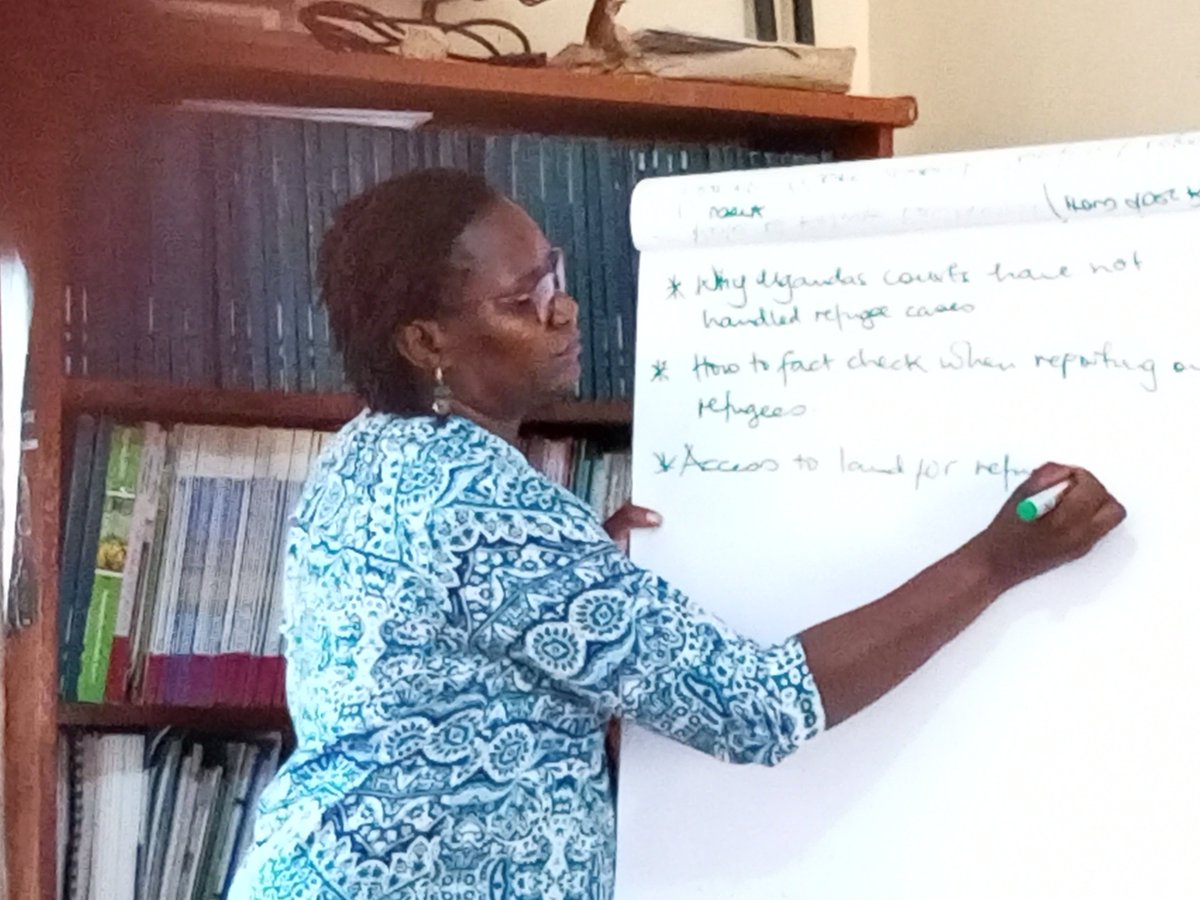 * Why Ugandas courts have not
handled refugee cases
* How to fact check when reporting on
refugees
* Access to land for refu